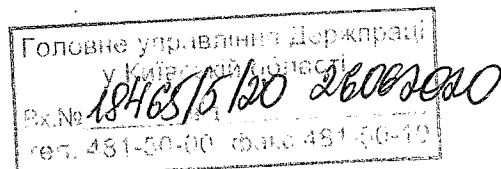 Головне управління Держпраці
у Київській області
Вх.№ 18465/5/20 26062020
тел. 481-50-00 факс 481-50-10